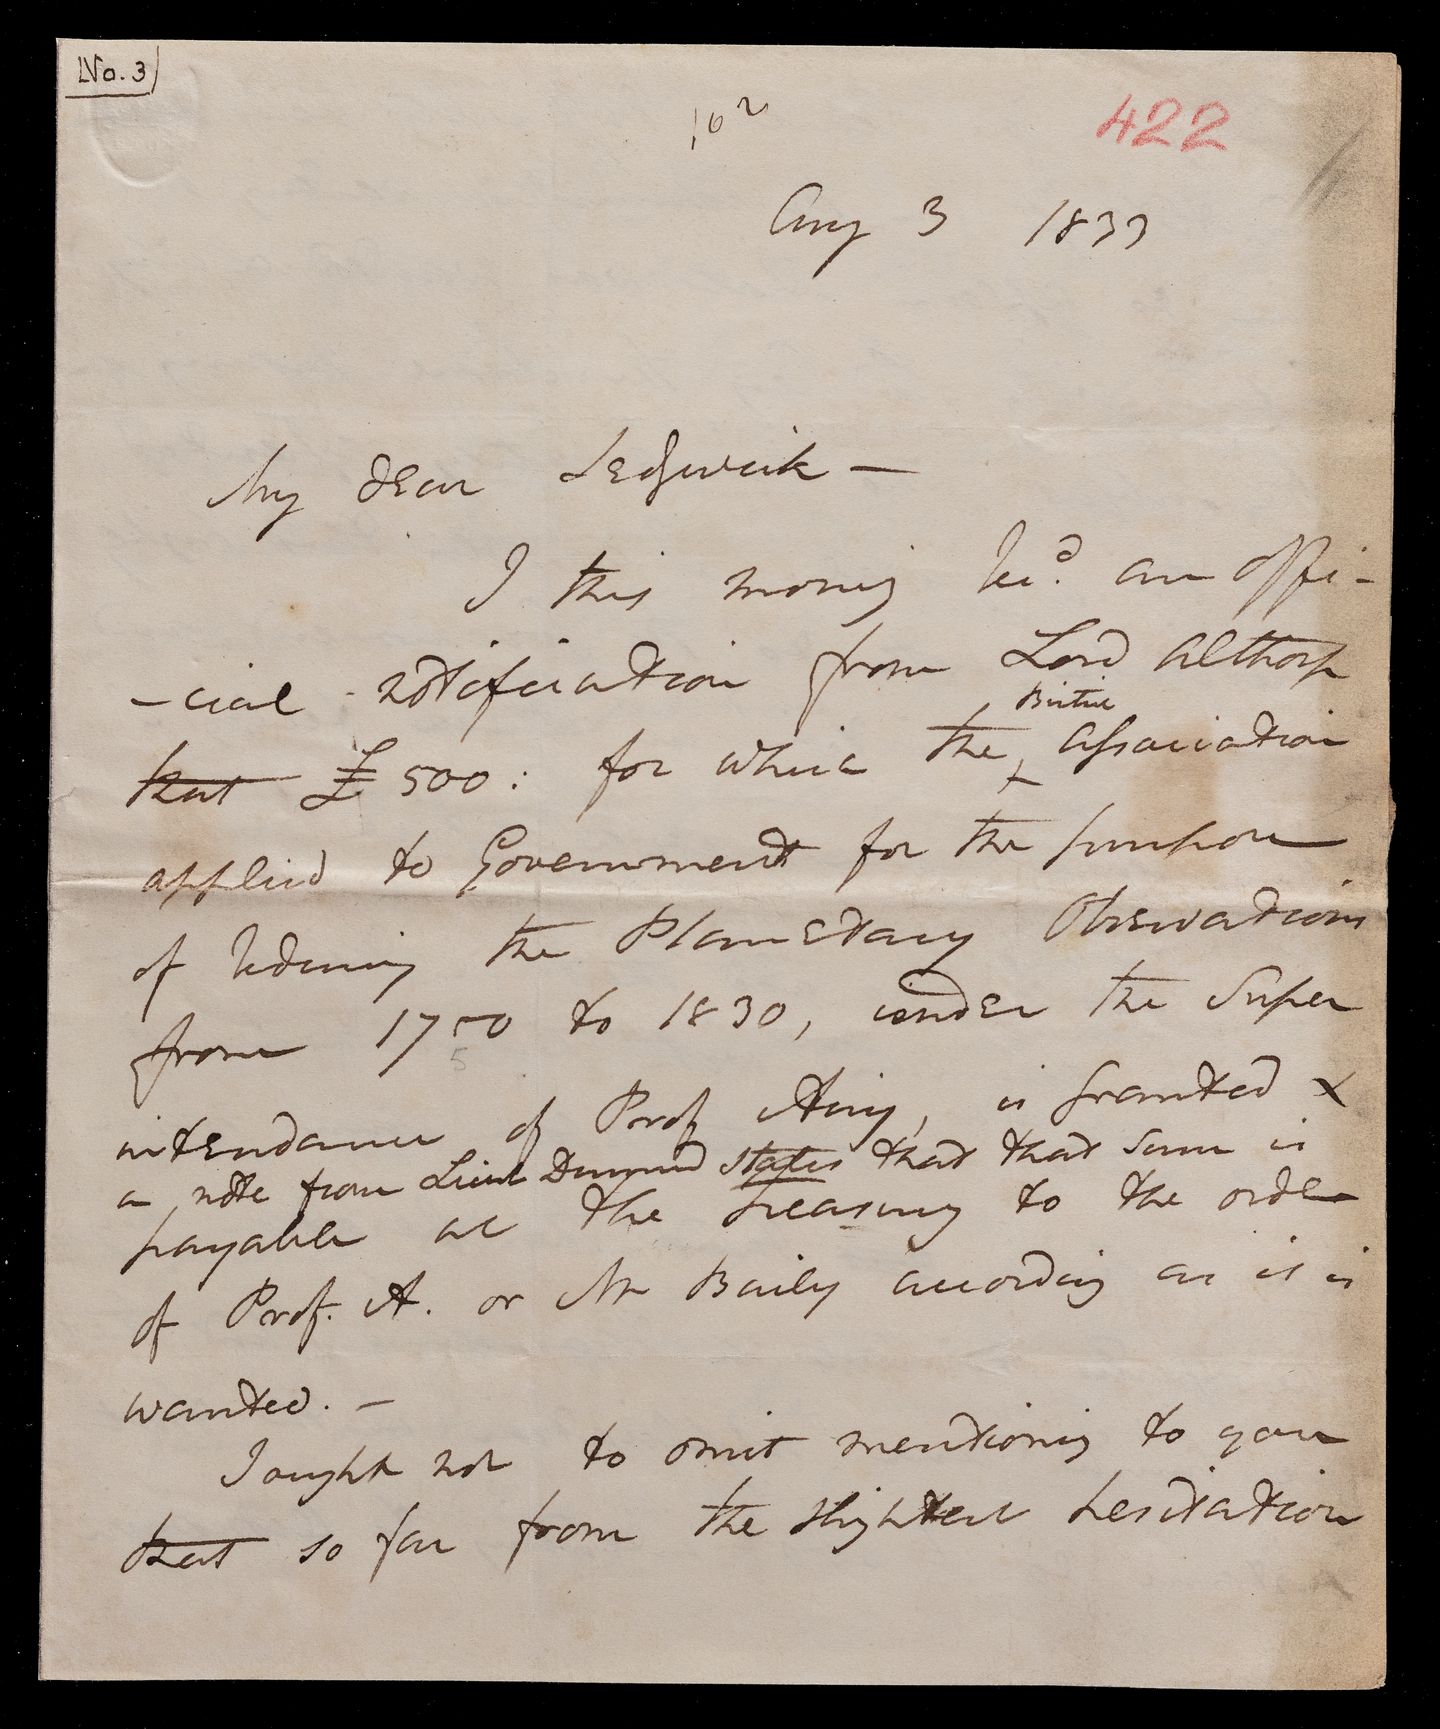 No. 3
102
422
Aug 3 1833
My dear Sedgwick —
I this morning recd. an offi-
-cial notification from Lord Althorp
that £500: for which the British Association
applied to Government for the purpose
of reducing the Planetary Observations
from 1750 to 1830, under the Super
5
intendance of Prof Airy, is granted &
a note from Lieut Drummond states that that sum is
payable at the Treasury to the order
of Prof. A. or Mr Baily according as it is
wanted. —
I ought not to omit mentioning to you
that so far from the slightest hesitation